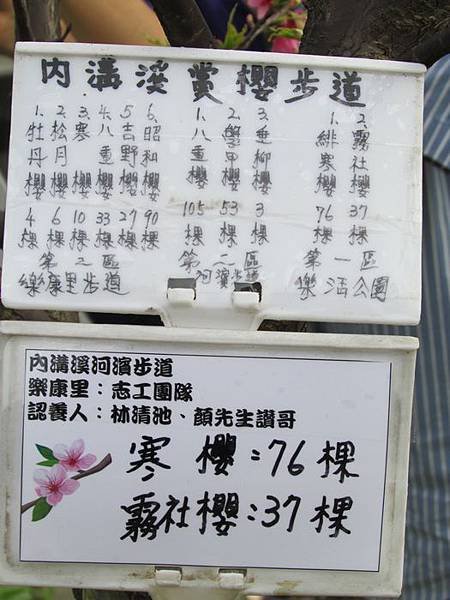 內溝溪賞櫻步道
1.牡丹櫻 4棵
2.松月櫻 6棵
3.寒櫻 10棵
4.八重櫻 33棵
5.吉野櫻 27棵
6.昭和櫻 90棵
第三區
樂康里步道
1.八重櫻 105棵
2.學甲櫻 53棵
3.垂柳櫻 3棵
第二區
河濱步道
1.緋寒櫻 76棵
2.霧社櫻 37棵
第一區
樂活公園
內溝溪河濱步道
樂康里：志工團隊
認養人：林清池、顏先生讚哥
寒櫻：76棵
霧社櫻：37棵